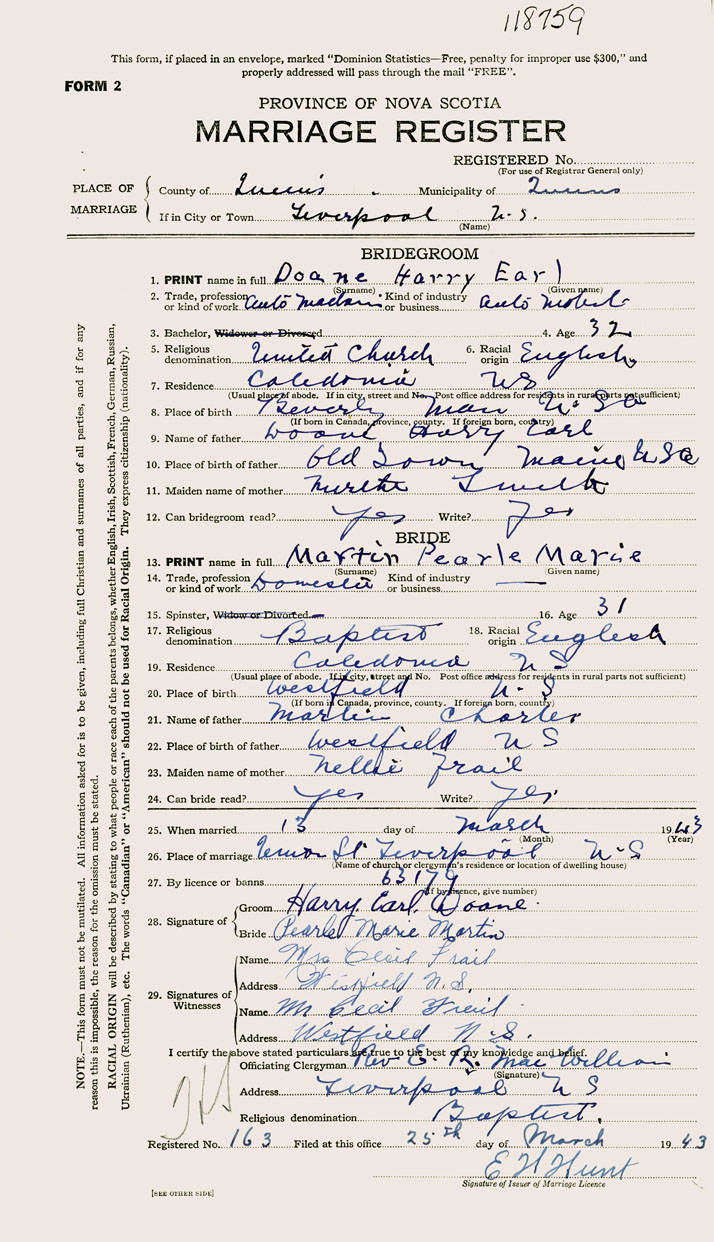 118759
This form, if placed in an envelope, marked "Dominion Statistics—Free, penalty for improper use $300," and
properly addressed will pass through the mail "FREE".
FORM 2
PROVINCE OF NOVA SCOTIA
MARRIAGE REGISTER
REGISTERED No.
(For use of Registrar General only)
PLACE OF MARRIAGE
County of Queens Municipality of Queens
If in City or Town Liverpool N.S.
(Name)
BRIDEGROOM
1. PRINT name in full Doane Harry Earl
(Surname) (Given name)
2. Trade, profession or kind of work Auto Kind of industry or business Auto
3. Bachelor, Widower or Divorced 4. Age 32
5. Religious denomination United Church 6. Racial origin English
7. Residence Caledonia NS
(Usual place of abode. If in city, street and No. Post office address for residents in rural parts not sufficient)
8. Place of birth Beverly U.S.a
(If born in Canada, province, county. If foreign born, country)
9. Name of father Doane Harry Earl
10. Place of birth of father Old Town Maine USa
11. Maiden name of mother Smith
12. Can bridegroom read? yes Write? yes
BRIDE
13. PRINT name in full Martin Pearle Marie
(Surname) (Given name)
14. Trade, profession or kind of work Domestic Kind of industry or business —
15. Spinster, Widow or Divorced 16. Age 31
17. Religious denomination Baptist 18. Racial origin English
19. Residence Caledonia N S
(Usual place of abode. If in city, street and No. Post office address for residents in rural parts not sufficient)
20. Place of birth Westfield N. S
(If born in Canada, province, county. If foreign born, country)
21. Name of father Martin Charles
22. Place of birth of father Westfield N S
23. Maiden name of mother Nellie Frail
24. Can bride read? yes Write? yes
25. When married 13 day of March 1943
(Month) (Year)
26. Place of marriage Union St Liverpool N-S
(Name of church or clergyman's residence or location of dwelling house)
27. By licence or banns 63179
(If by licence, give number)
28. Signature of
Groom Harry Earl Doane.
Bride Pearle Marie Martin
29. Signatures of Witnesses
Name Mrs Cecil Frail
Address Westfield N.S.
Name Mr Cecil Frail
Address Westfield N.S.
I certify the above stated particulars are true to the best of my knowledge and belief.
Officiating Clergyman Rev E. R. MacWilliam
(Signature)
Address Liverpool N S
Religious denomination Baptist.
Registered No. 163 Filed at this office 25th day of March 1943
E H Hunt
Signature of Issuer of Marriage Licence
[SEE OTHER SIDE]
NOTE.—This form must not be mutilated. All information asked for is to be given, including full Christian and surnames of all parties, and if for any
reason this is impossible, the reason for the omission must be stated.
RACIAL ORIGIN will be described by stating to what people or race each of the parents belongs, whether English, Irish, Scottish, French, German, Russian,
Ukrainian (Ruthenian), etc. The words "Canadian" or "American" should not be used for Racial Origin. They express citizenship (nationality).